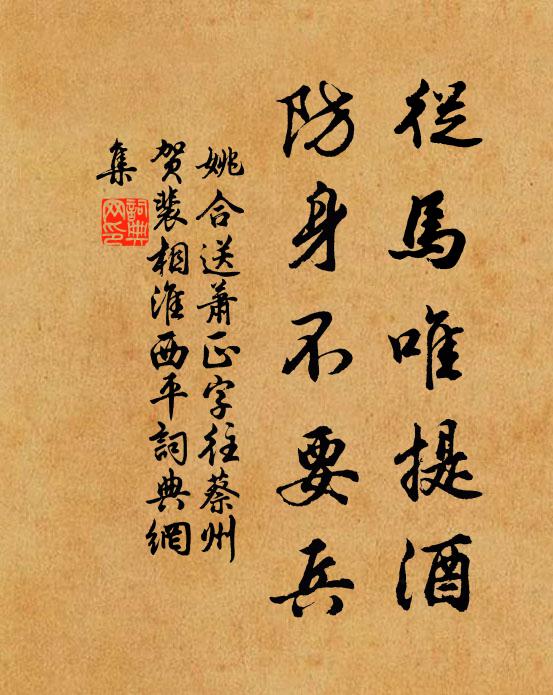 從馬唯提酒
防身不要兵
姚合送蕭正字往蔡州
賀裴相淮西平詞典網
集
詞典
网印